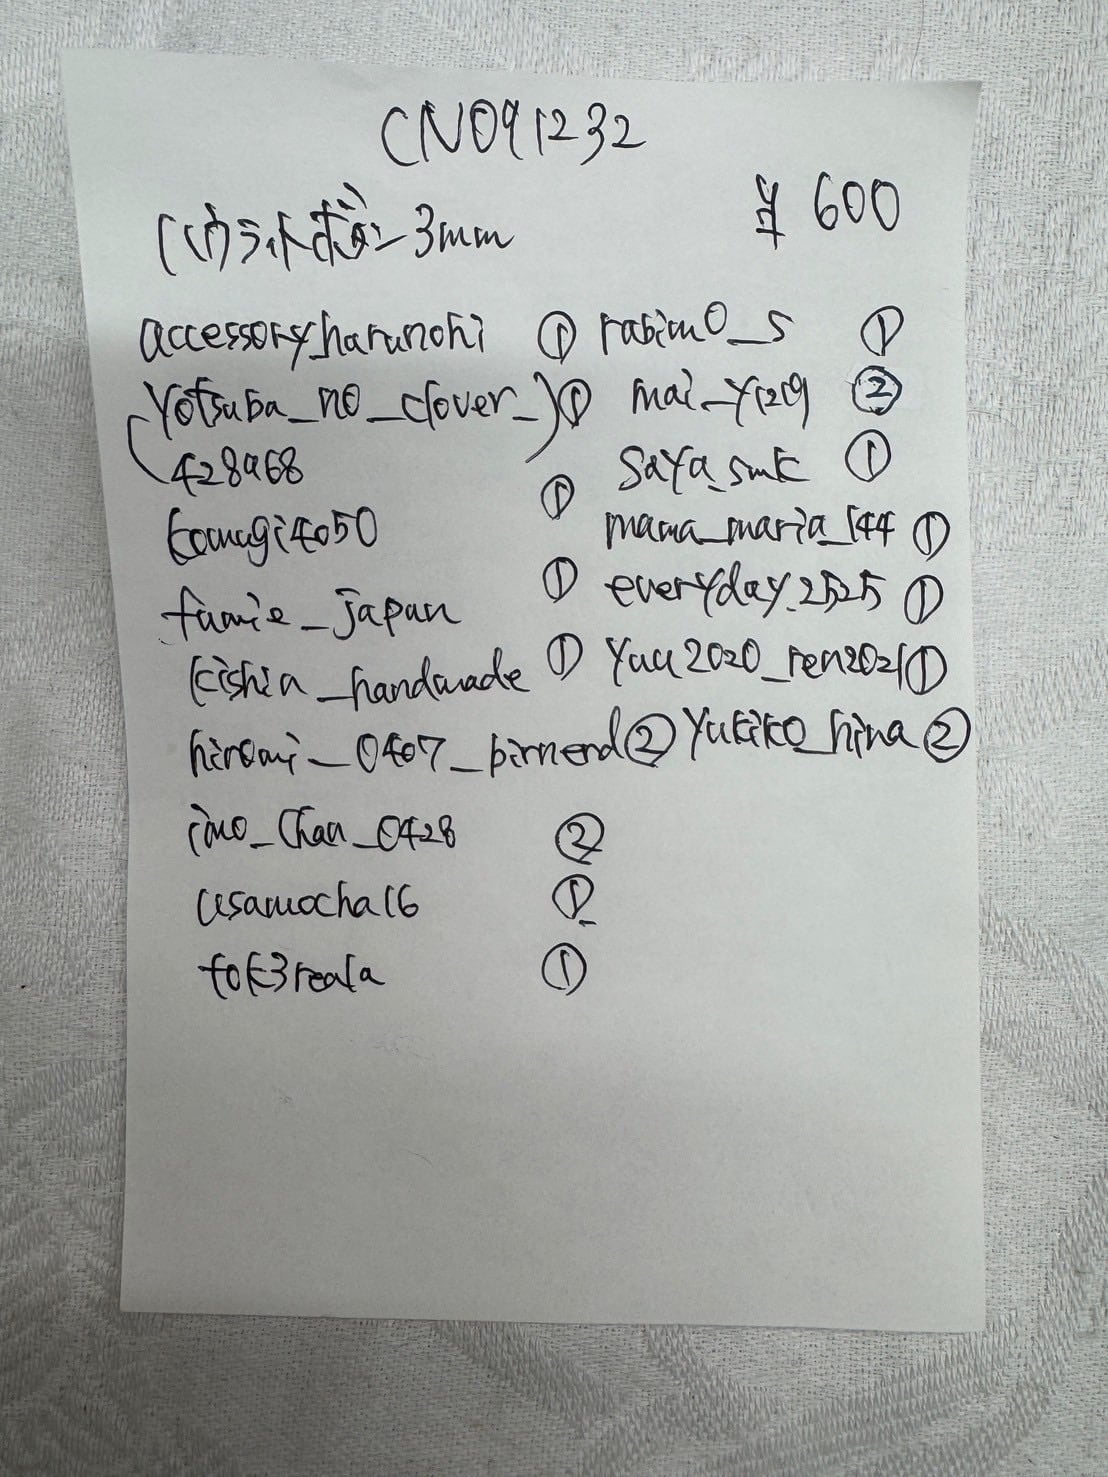 CN091232
¥600
パウライトボタン3mm
accessory_harunohi ①
yotsuba_no_clover_ ①
428a68
komugi4050 ①
fumie_japan ①
kishia_handmade ①
hiromi_0407_birnend ②
imo_chan_0428 ②
usamocha16 ①
tok3reala ①
rabim0_s ①
mai_y1219 ②
saya_smk ①
mama_maria_144 ①
everyday.2525 ①
yuu2020_ren2021 ①
yukiko_hina ②